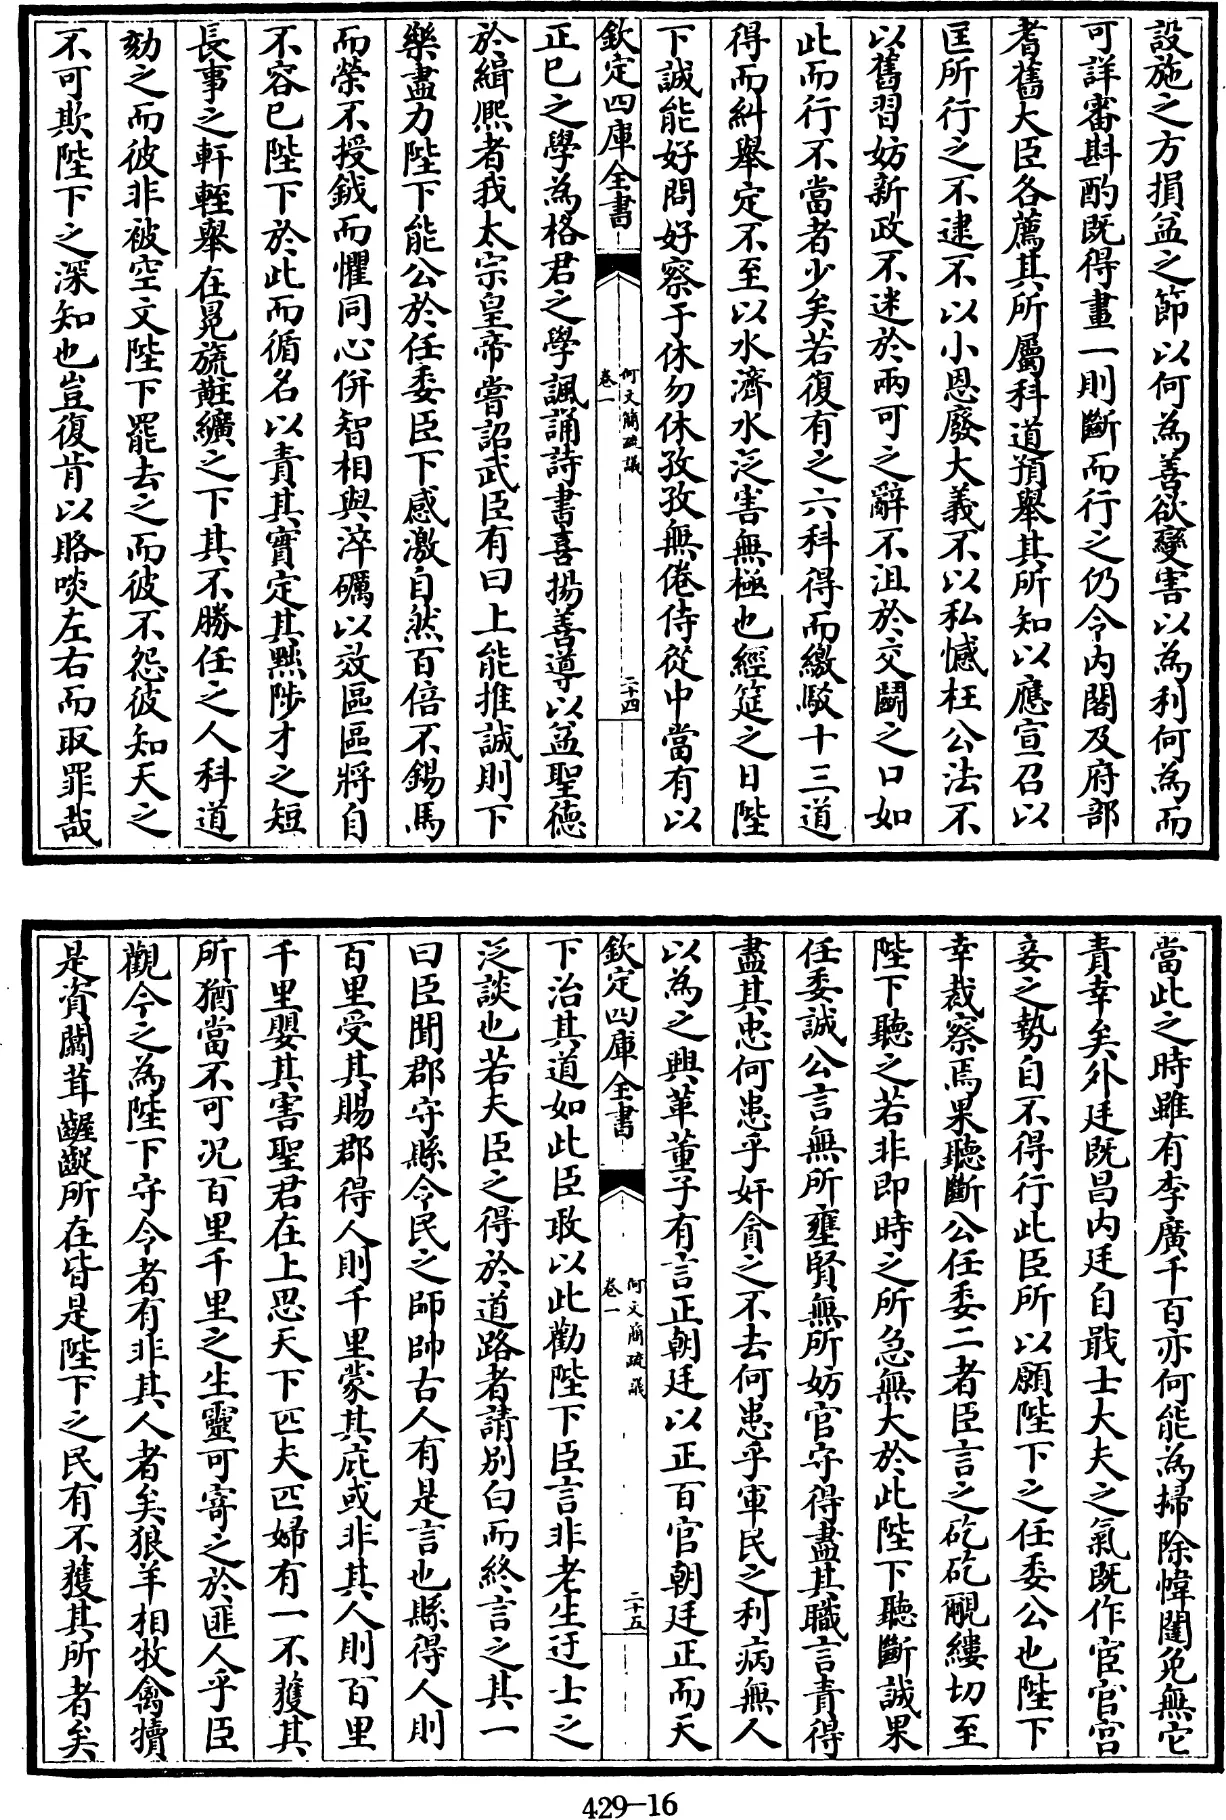 設施之方損益之節以何為善欲變害以為利何為而
可詳審斟酌既得畫一則斷而行之仍令内閣及府部
耆舊大臣各薦其所屬科道預舉其所知以應宣召以
匡所行之不逮不以小恩廢大義不以私憾枉公法不
以舊習妨新政不迷於兩可之辭不沮於交鬭之口如
此而行不當者少矣若復有之六科得而繳駁十三道
得而糾舉定不至以水濟水泛害無極也經筵之日陛
下誠能好問好察于休勿休孜孜無倦侍從中當有以
欽定四庫全書
何文簡疏議
卷一
二十四
正巳之學為格君之學諷誦詩書喜揚善導以益聖德
於緝熈者我太宗皇帝嘗詔武臣有曰上能推誠則下
樂盡力陛下能公於任委臣下感激自然百倍不錫馬
而榮不授鉞而懼同心併智相與淬礪以效區區將自
不容巳陛下於此而循名以責其實定其黜陟才之短
長事之軒輊舉在冕旒黈纊之下其不勝任之人科道
劾之而彼非被空文陛下罷去之而彼不怨彼知天之
不可欺陛下之深知也豈復肯以賂啖左右而取罪哉
當此之時雖有李廣千百亦何能為掃除幃闥免無它
責幸矣外廷既昌内廷自戢士大夫之氣既作宦官宮
妾之勢自不得行此臣所以願陛下之任委公也陛下
幸裁察焉果聽斷公任委二者臣言之矻矻覼縷切至
陛下聽之若非即時之所急無大於此陛下聽斷誠果
任委誠公言無所壅賢無所妨官守得盡其職言責得
盡其忠何患乎奸貪之不去何患乎軍民之利病無人
以為之興革董子有言正朝廷以正百官朝廷正而天
欽定四庫全書
何文簡疏議
卷一
二十五
下治其道如此臣敢以此勸陛下臣言非老生迂士之
泛談也若夫臣之得於道路者請别白而終言之其一
曰臣聞郡守縣令民之師帥古人有是言也縣得人則
百里受其賜郡得人則千里蒙其庇或非其人則百里
千里嬰其害聖君在上思天下匹夫匹婦有一不獲其
所猶當不可况百里千里之生靈可寄之於匪人乎臣
觀今之為陛下守令者有非其人者矣狼羊相牧禽犢
是資闒茸齷齪所在皆是陛下之民有不獲其所者矣
429—16